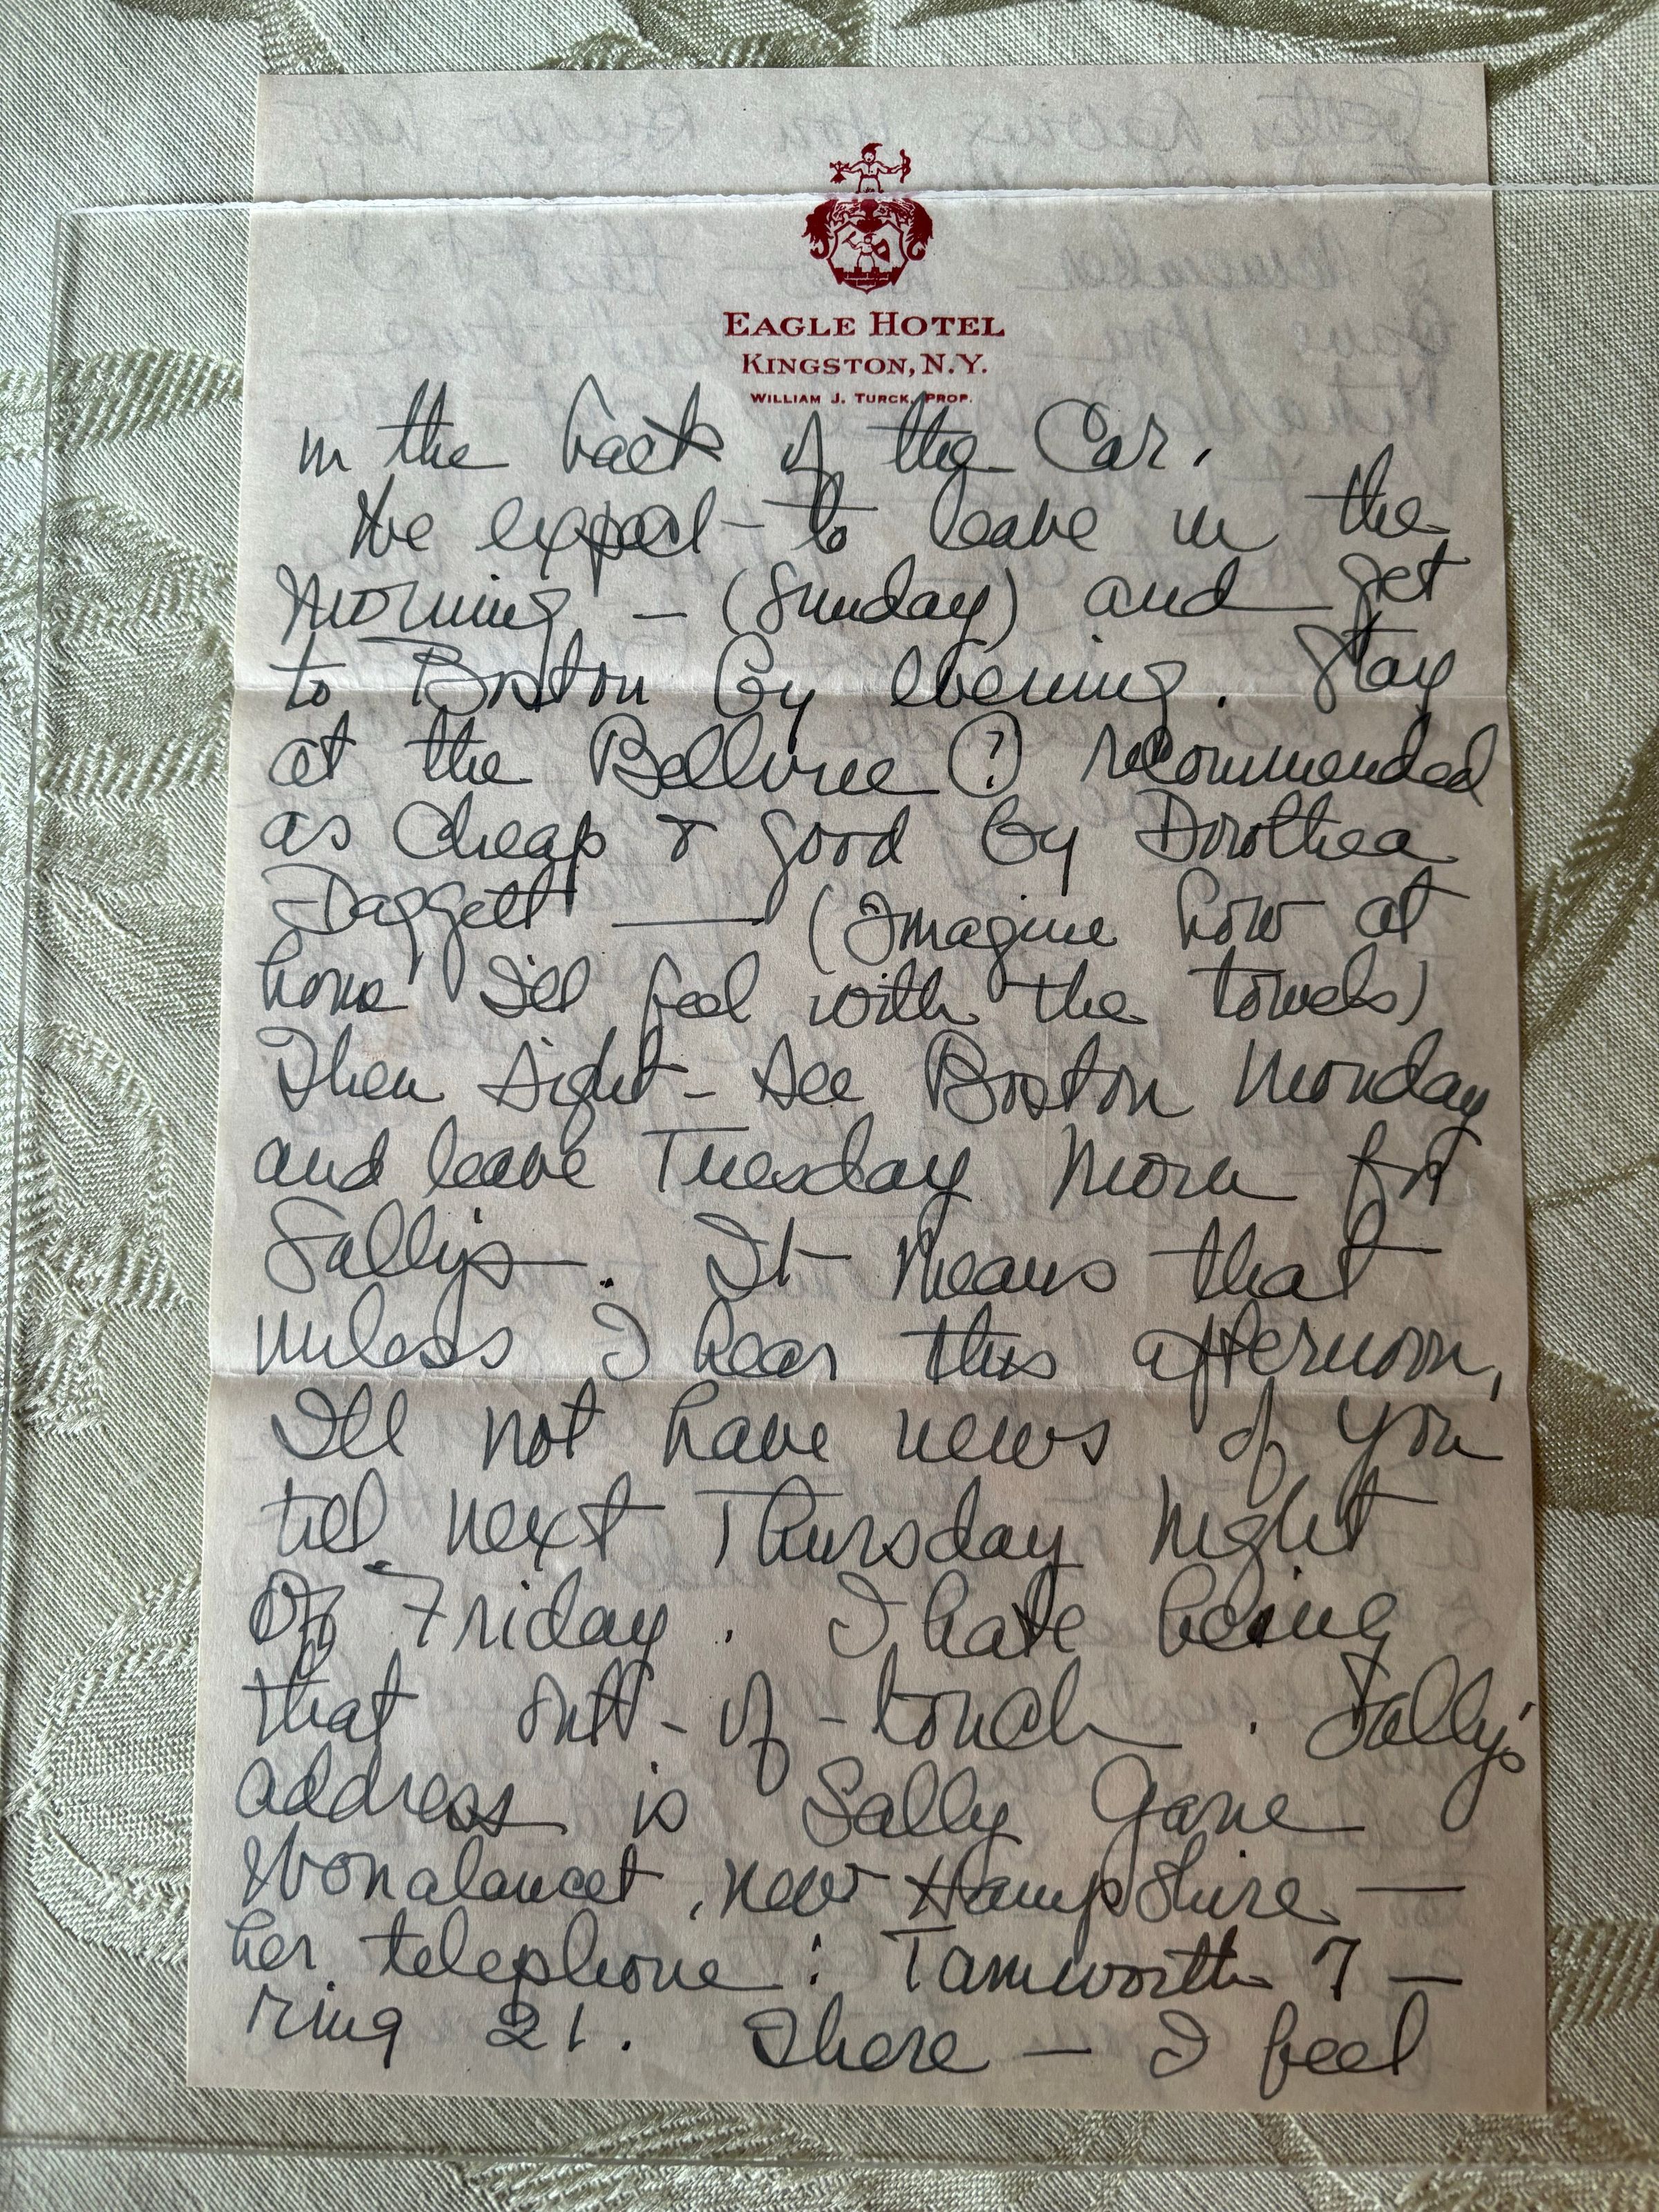 EAGLE HOTEL
KINGSTON, N.Y.
WILLIAM J. TURCK, PROP.
in the back of the Car.
We expect to leave in the
morning — (Sunday) and get
to Boston by evening. Stay
at the Bellvue (?) recommended
as cheap & good by Dorothea
Daggett — (Imagine how at
home I'll feel with the towels)
Then sight-see Boston Monday
and leave Tuesday morn for
Sally's. It means that
unless I hear this afternoon,
I'll not have news of you
till next Thursday night
or Friday. I hate being
that out-of-touch. Sally's
address is Sally Gane
Wonalancet, New Hampshire —
her telephone: Tamworth 7 —
ring 21. There — I feel